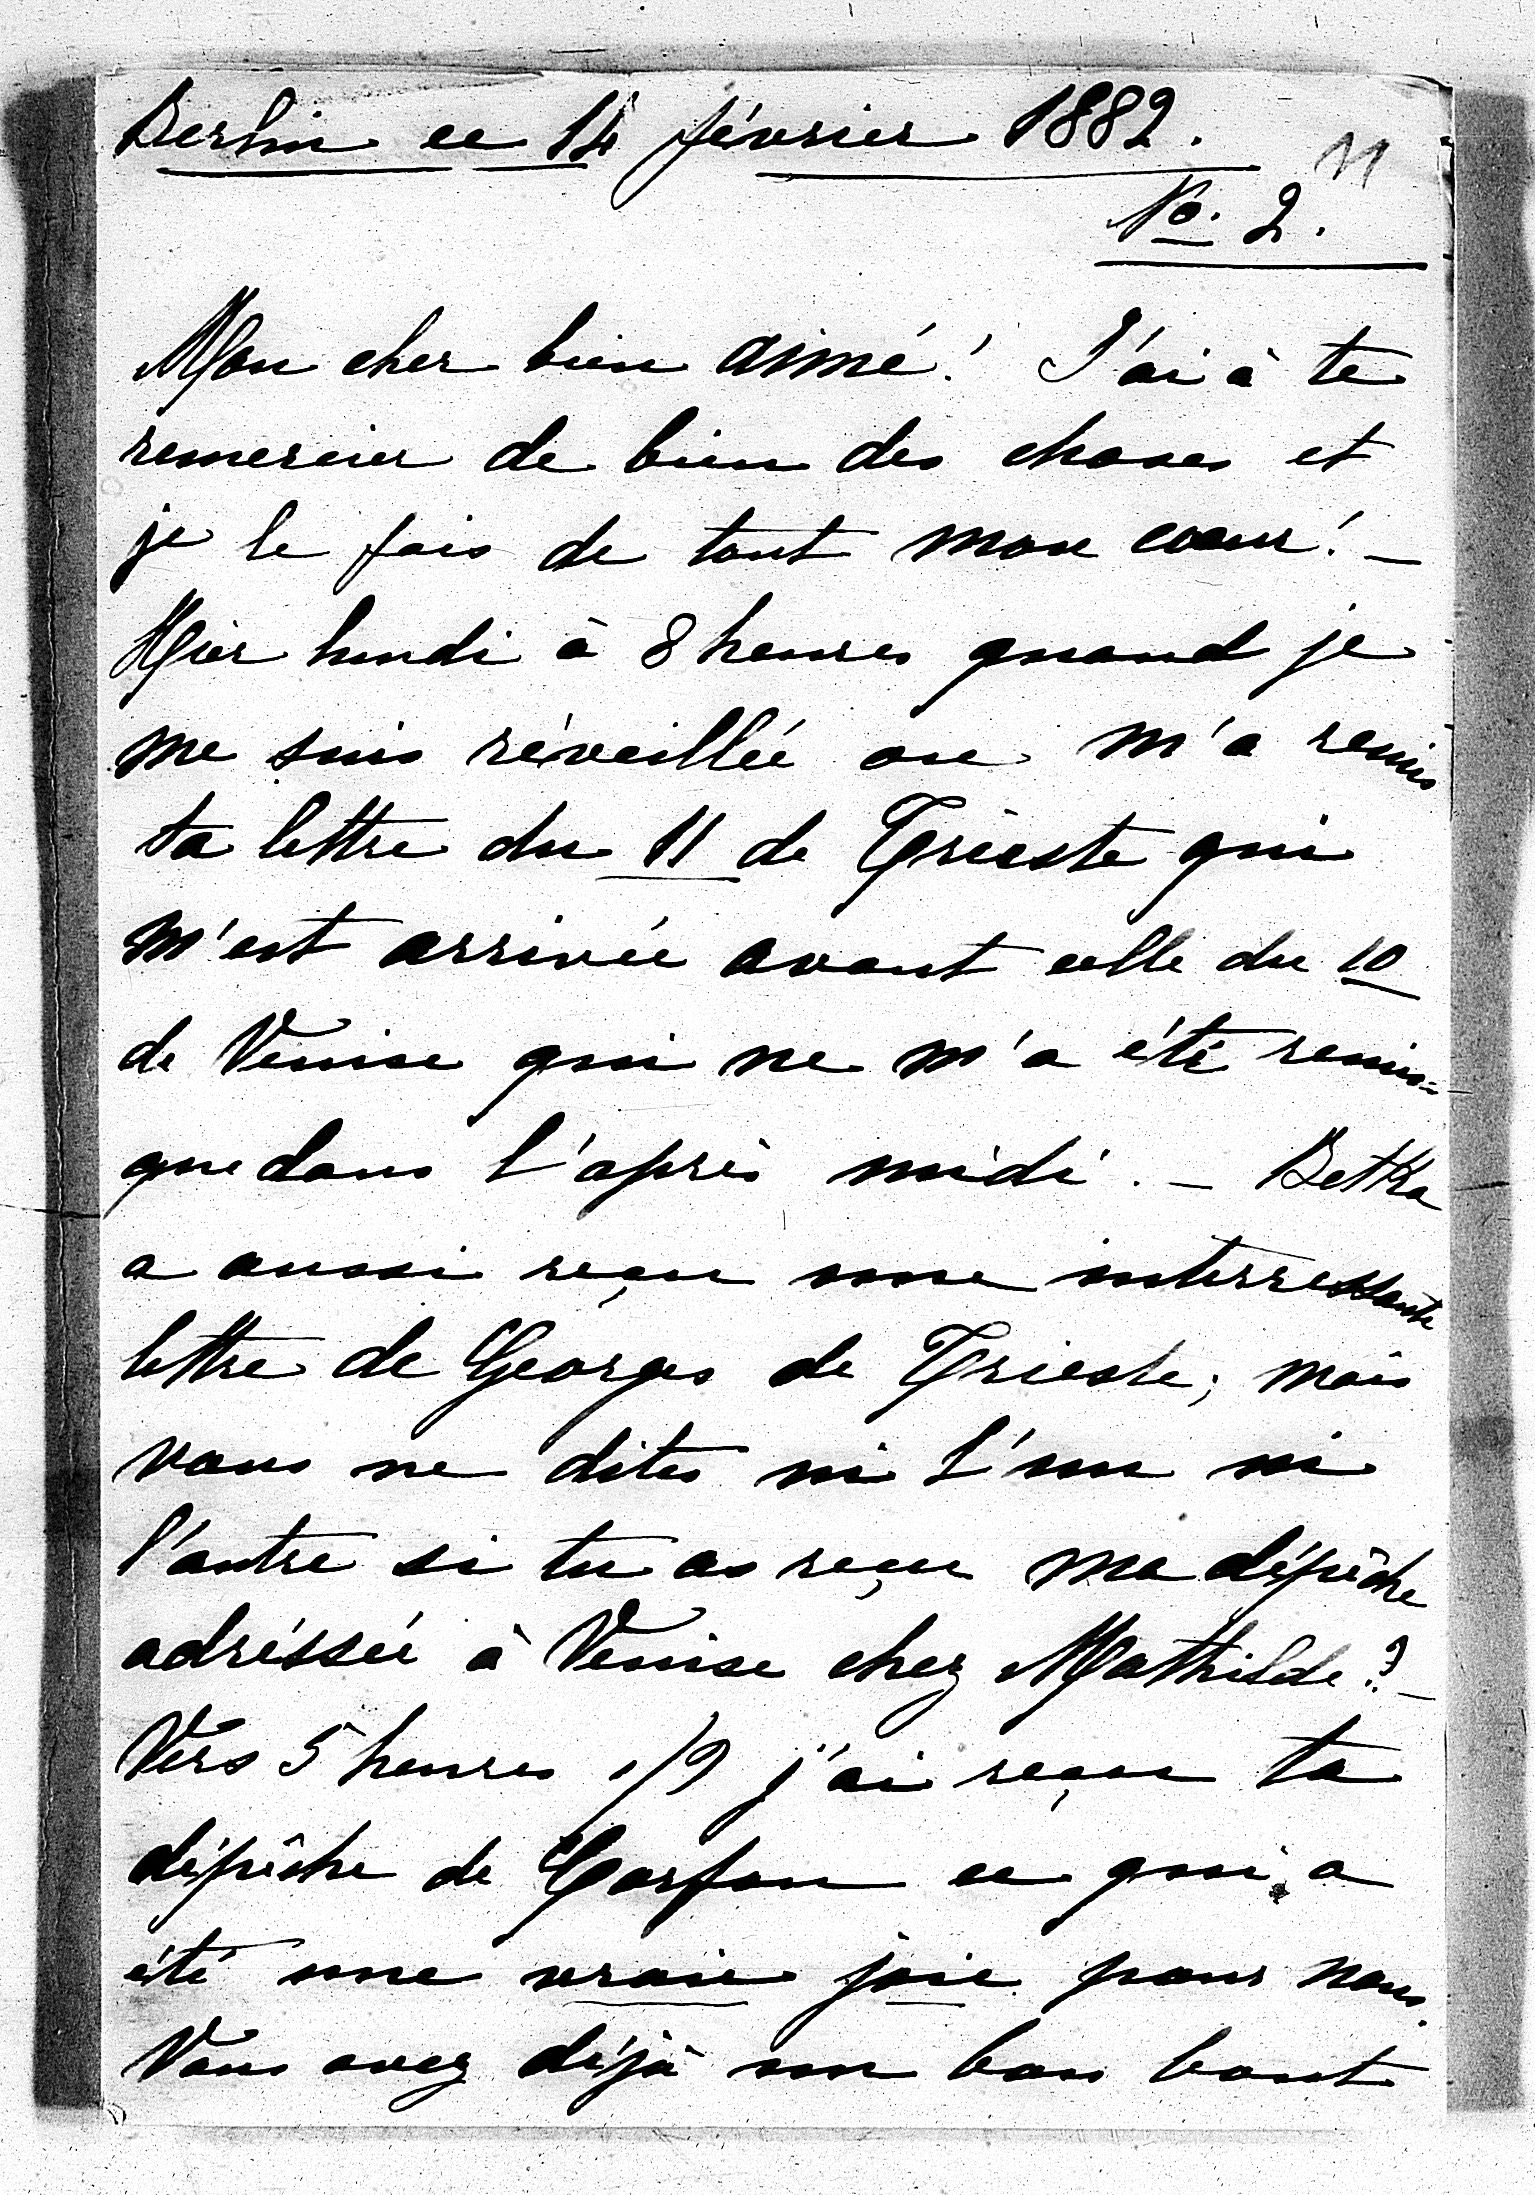 Berlin ce 14 février 1882.
11
No. 2.
Mon cher bien aimé! J'ai à te
remercier de bien des choses et
je le fais de tout mon coeur! –
Hier lundi à 8 heures quand je
me suis réveillée on m'a remis
ta lettre du 11 de Trieste qui
m'est arrivée avant celle du 10
de Venise qui ne m'a été remise
que dans l'après midi. – Betka
a aussi reçu une interressante
lettre de Georges de Trieste; mais
vous ne dites ni l'un ni
l'autre si tu as reçu ma dépêche
adréssée à Venise chez Mathilde? –
Vers 5 heures 1/2 j'ai reçu ta
dépêche de Corfou ce qui a
été une vraie joie pour nous.
Vous avez déjà un bon bout